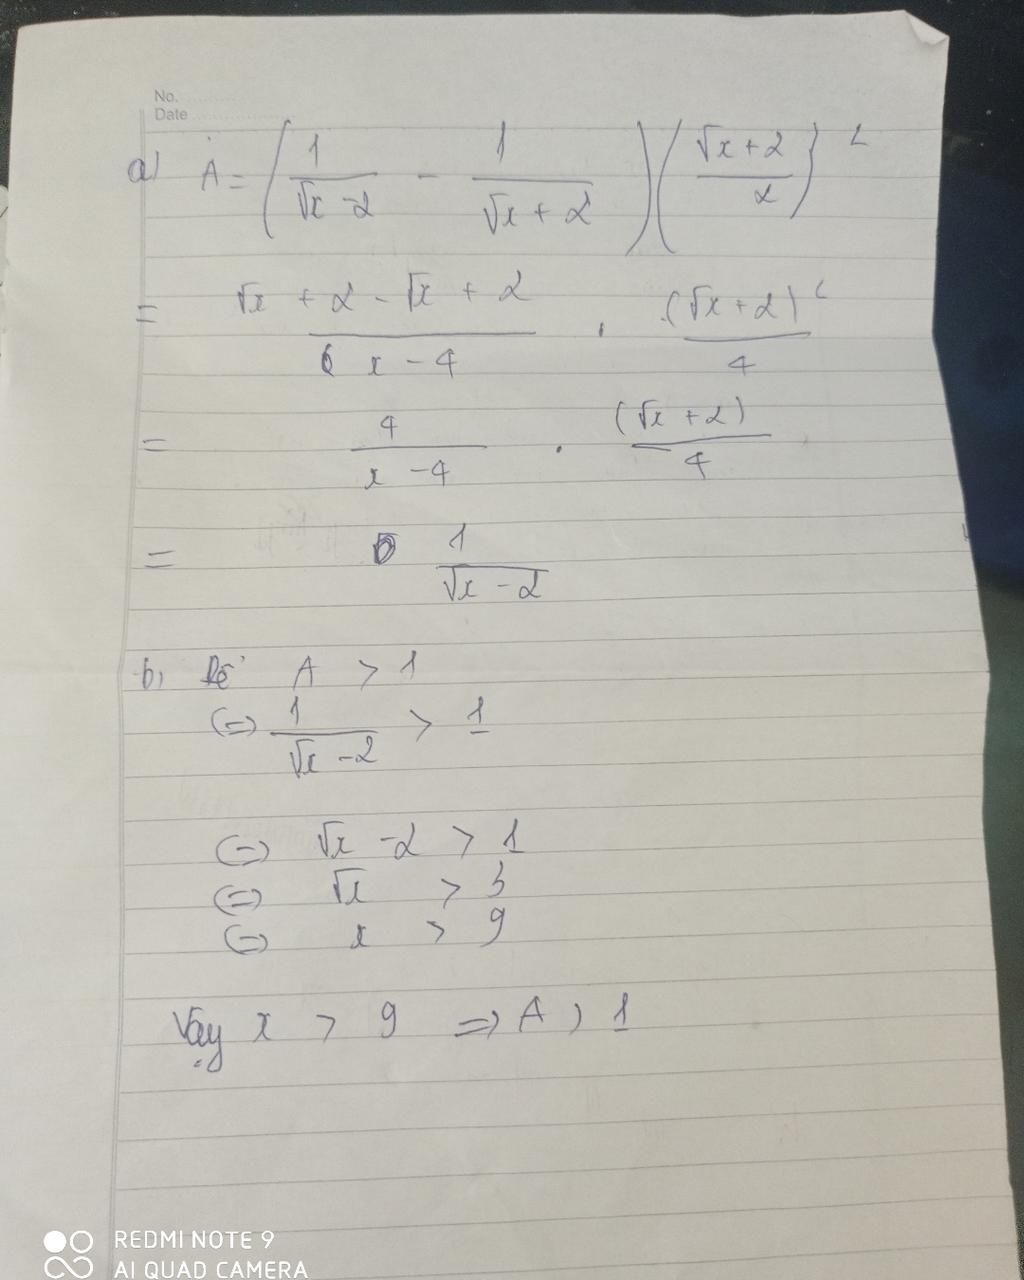 No.
Date
a) A = ( 1/(√x - 2) - 1/(√x + 2) ) ( (√x + 2)/2 )²
= (√x + 2 - √x + 2)/(x - 4) . (√x + 2)²/4
= 4/(x - 4) . (√x + 2)/4
= 1/(√x - 2)
b, Để A > 1
(=) 1/(√x - 2) > 1
(=) √x - 2 > 1
(=) √x > 3
(=) x > 9
Vậy x > 9 => A > 1
REDMI NOTE 9
AI QUAD CAMERA